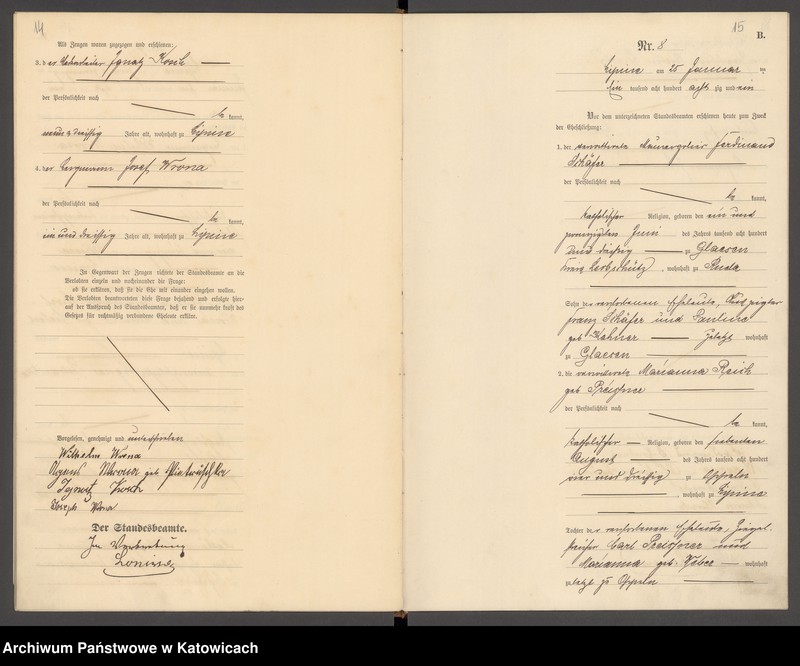 14
Als Zeugen waren zugezogen und erschienen:
3. der Ignatz Kosch
der Persönlichkeit nach
be kannt,
neun u dreissig Jahre alt, wohnhaft zu Lipine
4. der Bergmann Josef Wrona
der Persönlichkeit nach
be kannt,
ein und dreissig Jahre alt, wohnhaft zu Lipine
In Gegenwart der Zeugen richtete der Standesbeamte an die
Verlobten einzeln und nacheinander die Frage:
ob sie erklären, daß sie die Ehe mit einander eingehen wollen.
Die Verlobten beantworteten diese Frage bejahend und erfolgte hier-
auf der Ausspruch des Standesbeamten, daß er sie nunmehr kraft des
Gesetzes für rechtmäßig verbundene Eheleute erkläre.
Vorgelesen, genehmigt und unterschrieben
Wilhelm Wrona
Agnes Wrona geb
Ignatz Kosch
Wrona
Der Standesbeamte.
In Vertretung
15
B.
Nr. 8
Lipine am 25 Januar
Ein tausend acht hundert acht zig und ein
Vor dem unterzeichneten Standesbeamten erschienen heute zum Zweck
der Eheschließung:
1. der verwittwete Ferdinand
Schäfer
der Persönlichkeit nach
be kannt,
katholischer Religion, geboren den ein und
zwanzigsten Juni des Jahres tausend acht hundert
und dreißig zu Glaesen
Kreis Leobschütz, wohnhaft zu Ruda
Sohn der verstorbenen Eheleute,
Franz Schäfer und Pauline
geb zuletzt wohnhaft
zu Glaesen
2. die verwittwete Marianna Reich
geb Preissner
der Persönlichkeit nach
be kannt,
katholischer Religion, geboren den siebenten
August des Jahres tausend acht hundert
vier und dreißig zu Oppeln
, wohnhaft zu Lipine
Tochter der verstorbenen Eheleute, Ziegel-
streicher Carl Preissner und
Marianna geb. Weber wohnhaft
zuletzt zu Oppeln
Archiwum Państwowe w Katowicach